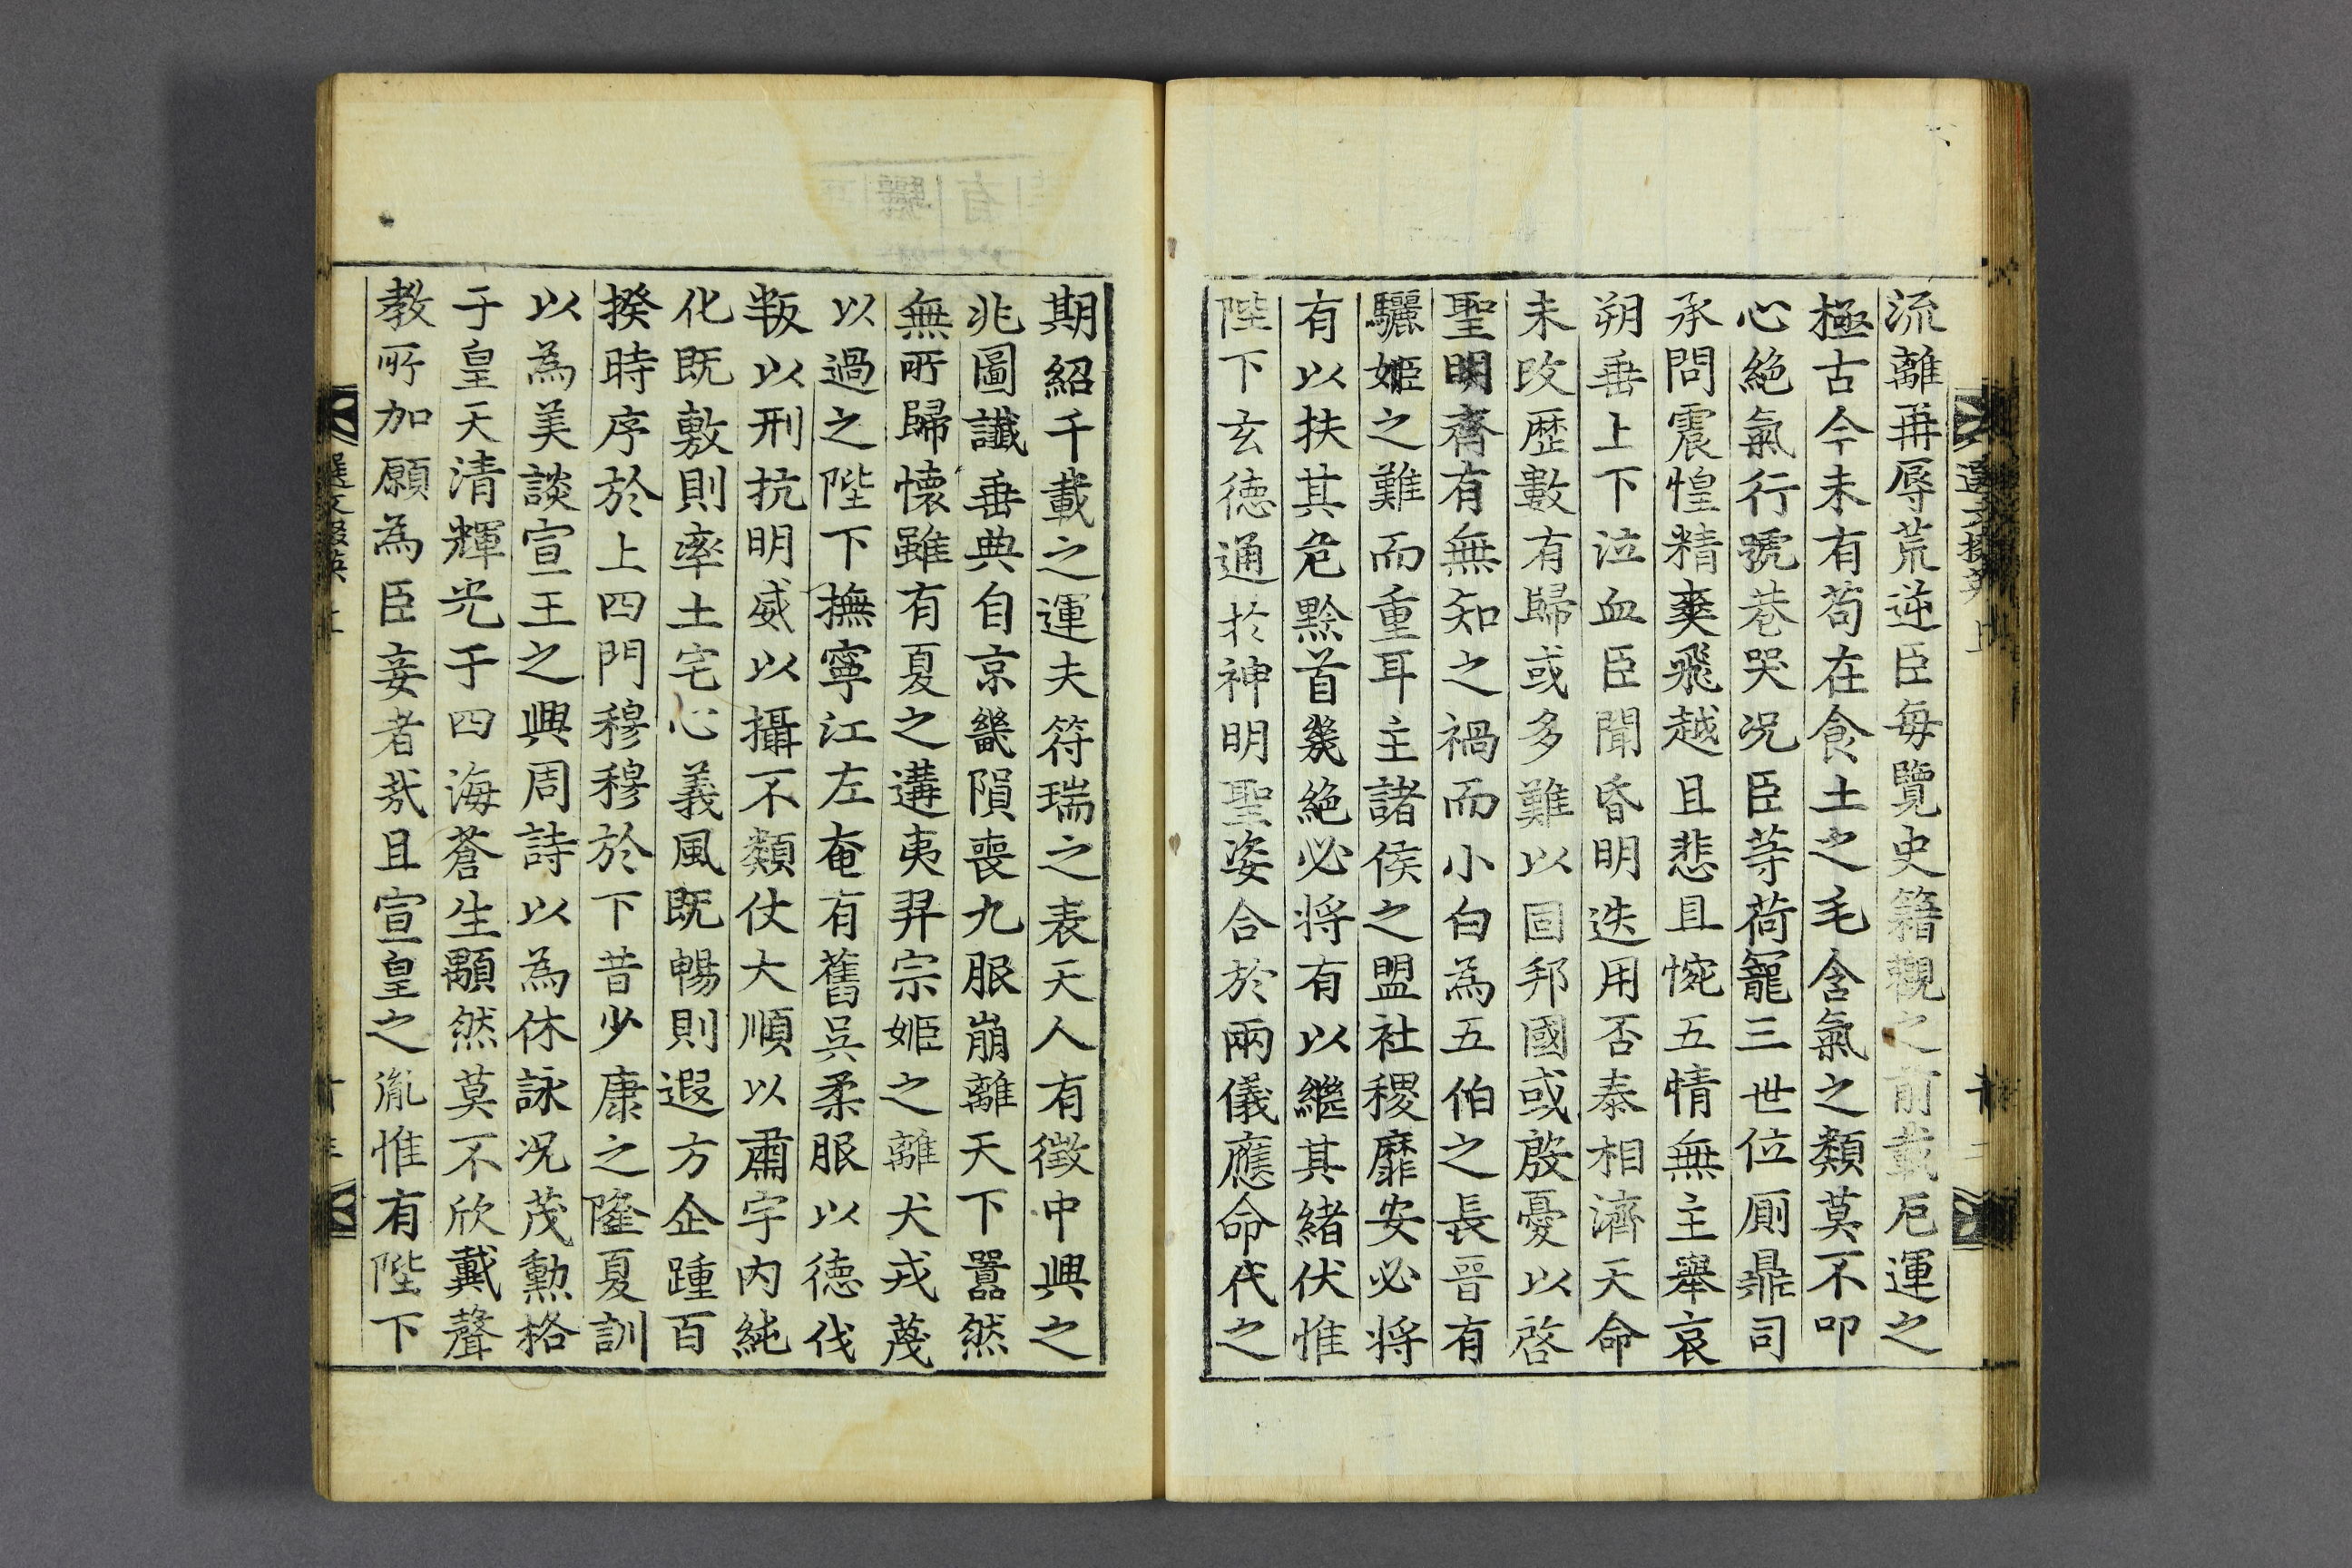 流離再辱荒逆臣每覽史籍觀之前載厄運之
極古今未有苟在食土之毛含氣之類莫不叩
心絶氣行號巷哭况臣等荷寵三世位厠鼎司
承問震惶精爽飛越且悲且惋五情無主舉哀
朔垂上下泣血臣聞昏明迭用否泰相濟天命
未改歷數有歸或多難以固邦國或殷憂以啓
聖明齊有無知之禍而小白為五伯之長晉有
驪姬之難而重耳主諸侯之盟社稷靡安必将
有以扶其危黔首幾絶必将有以繼其緒伏惟
陛下玄德通於神明聖姿合於兩儀應命代之
期紹千載之運夫符瑞之表天人有徵中興之
兆圖讖垂典自京畿隕喪九服崩離天下囂然
無所歸懷雖有夏之遘夷羿宗姬之離犬戎蔑
以過之陛下撫寧江左奄有舊吳柔服以德伐
叛以刑抗明威以攝不類仗大順以肅宇内純
化既敷則率土宅心義風既暢則遐方企踵百
揆時序於上四門穆穆於下昔少康之隆夏訓
以為美談宣王之興周詩以為休詠况茂勳格
于皇天清輝光于四海蒼生顒然莫不欣戴聲
教所加願為臣妾者㢤且宣皇之胤惟有陛下